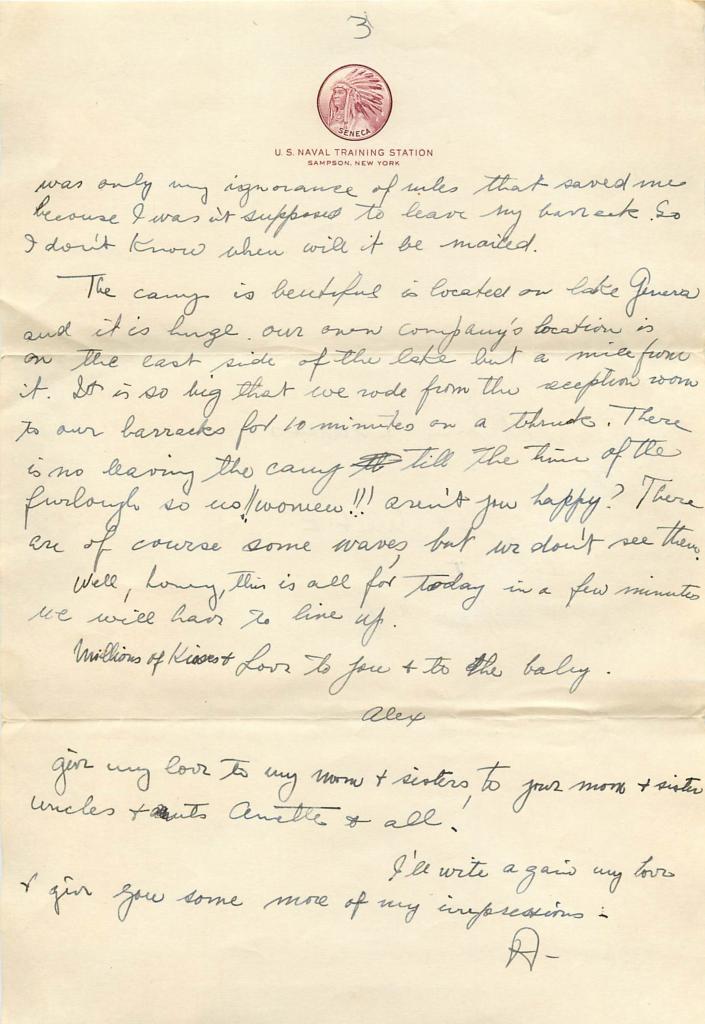 3
SENECA
U. S. NAVAL TRAINING STATION
SAMPSON, NEW YORK
was only my ignorance of rules that saved me
because I wasn't supposed to leave my barrack. So
I don't Know when will it be mailed.
The camp is beutiful is located on lake Geneva
and it is huge. our own company's location is
on the east side of the lake but a mile from
it. It is so big that we rode from the reception room
to our barracks for 10 minutes on a thruck. There
is no leaving the camp till the time of the
furlough so no "women"!!! aren't you happy? There
are of course some waves, but we don't see them.
Well, honey, this is all for today in a few minutes
we will have to line up.
Millions of Kisses + Love to you + to the baby.
Alex
give my love to my mom + sisters, to your mom + sister
uncles + aunts Anette + all!
I'll write again my love
+ give you some more of my impressions -
A-